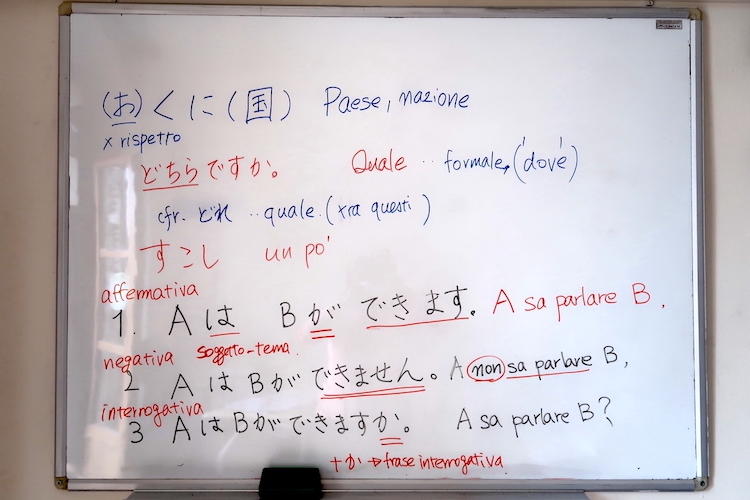 (お)くに(国) Paese, nazione
x rispetto
どちらですか。 Quale ‥ formale, ('dov'é)
cfr. どれ ‥ quale. (xra questi)
すこし un po'
affermativa
1. Aは Bが できます。 A sa parlare B.
soggetto-tema.
negativa
2 AはBができません。 A non sa parlare B,
interrogativa
3 AはBができますか。 A sa parlare B?
+か → frase interrogativa